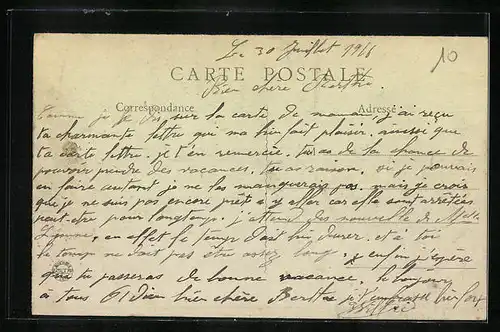 Le 30 Juillet 1916
10
CARTE POSTALE
Bien chère Berthe.
Correspondance
Adresse
Comme je te dis sur la carte de maman, j'ai reçu
ta charmante lettre qui m'a bien fait plaisir, ainsi que
ta carte lettre. je t'en remercie. tu as de la chance de
pouvoir prendre des vacances, tu as raison, si je pouvais
en faire autant je ne les manquerais pas, mais je crois
que je ne suis pas encore prêt à y aller car elle sont arrêtées
peut-être pour longtemps. j'attend des nouvelle de Melle
en effet le temps doit lui durer. et à toi
le temps ne doit pas être assez long. enfin j'espère
que tu passeras de bonne vacance. le bonjour
à tous et Dieu bien chère Berthe je t'embrasse bien fort